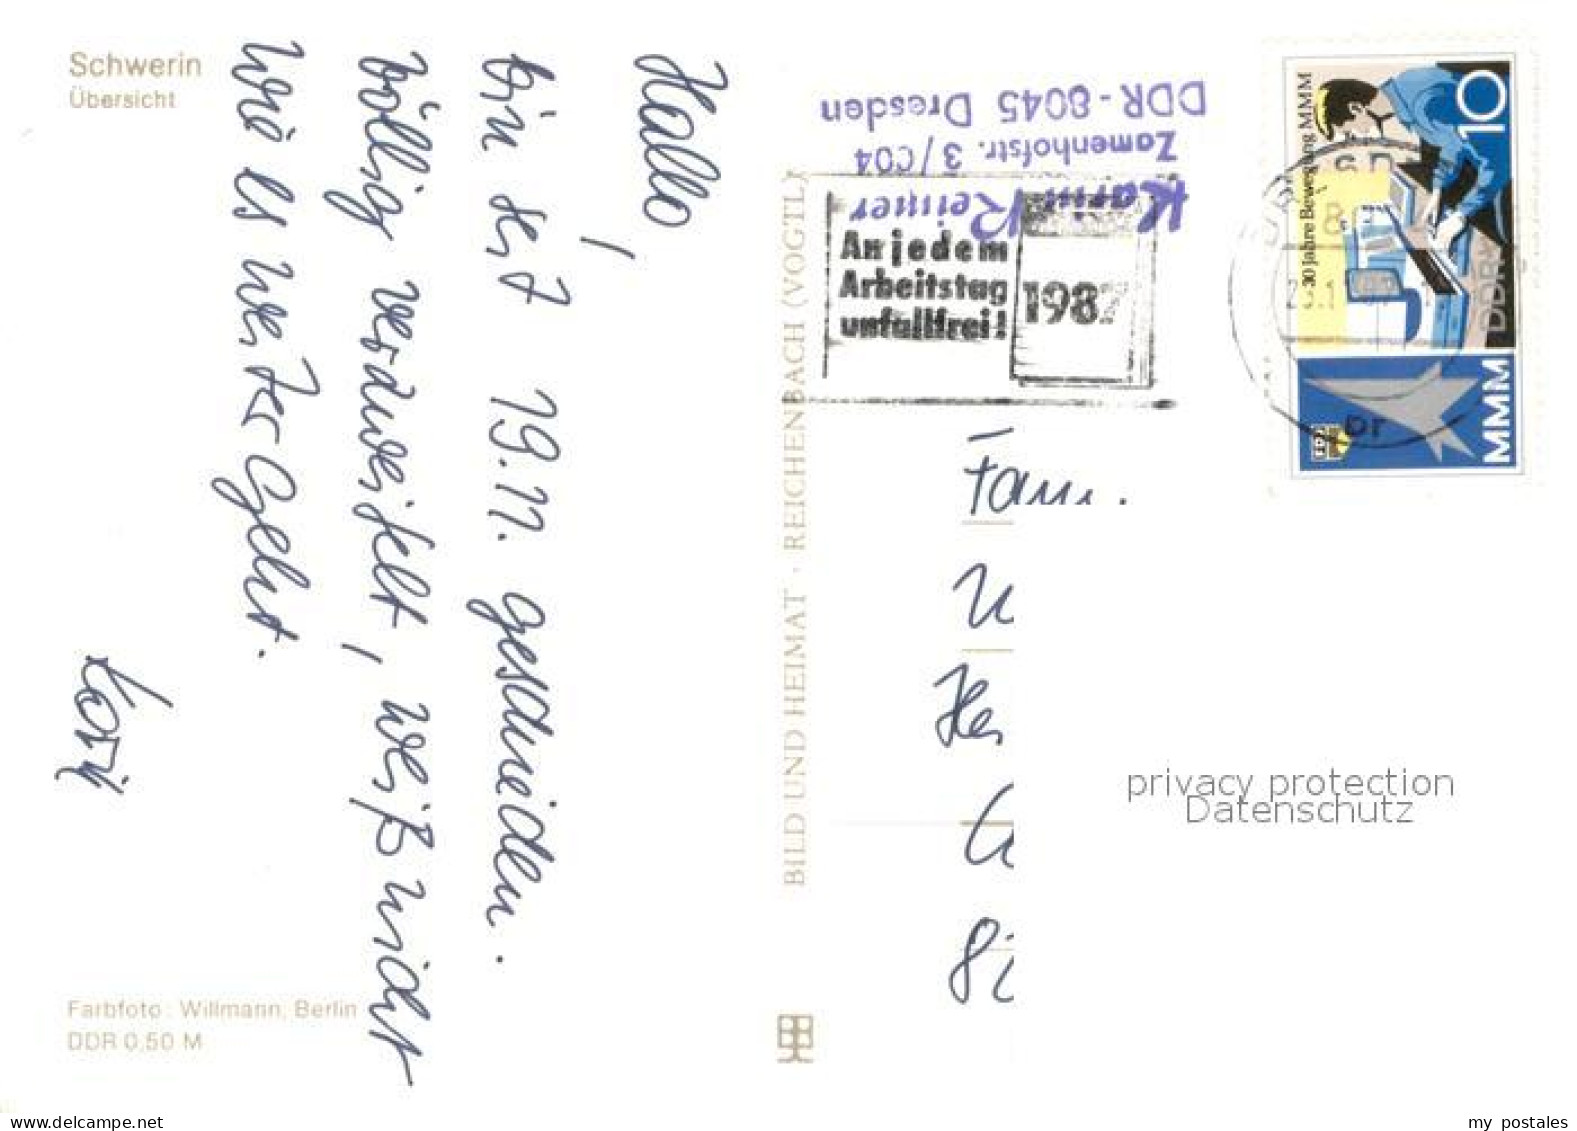 Schwerin
Übersicht
Hallo,
bin seit 19.11. geschieden.
Völlig verzweifelt, weiß nicht
wie es weiter geht.
Karin
Farbfoto: Willmann, Berlin
DDR 0,50 M
BILD UND HEIMAT · REICHENBACH (VOGTL)
Karin Reimer
Zamenhofstr. 3/C04
DDR-8045 Dresden
An jedem
Arbeitstag
unfallfrei!
198
30 Jahre Bewegung MMM
10
DDR
MMM
FDJ
Fam.
privacy protection
Datenschutz
www.delcampe.net
my postales